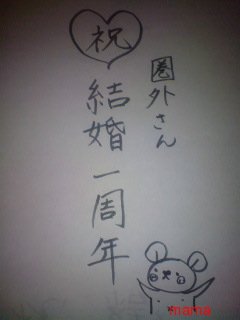 圏外さん
祝
結婚一周年
mama